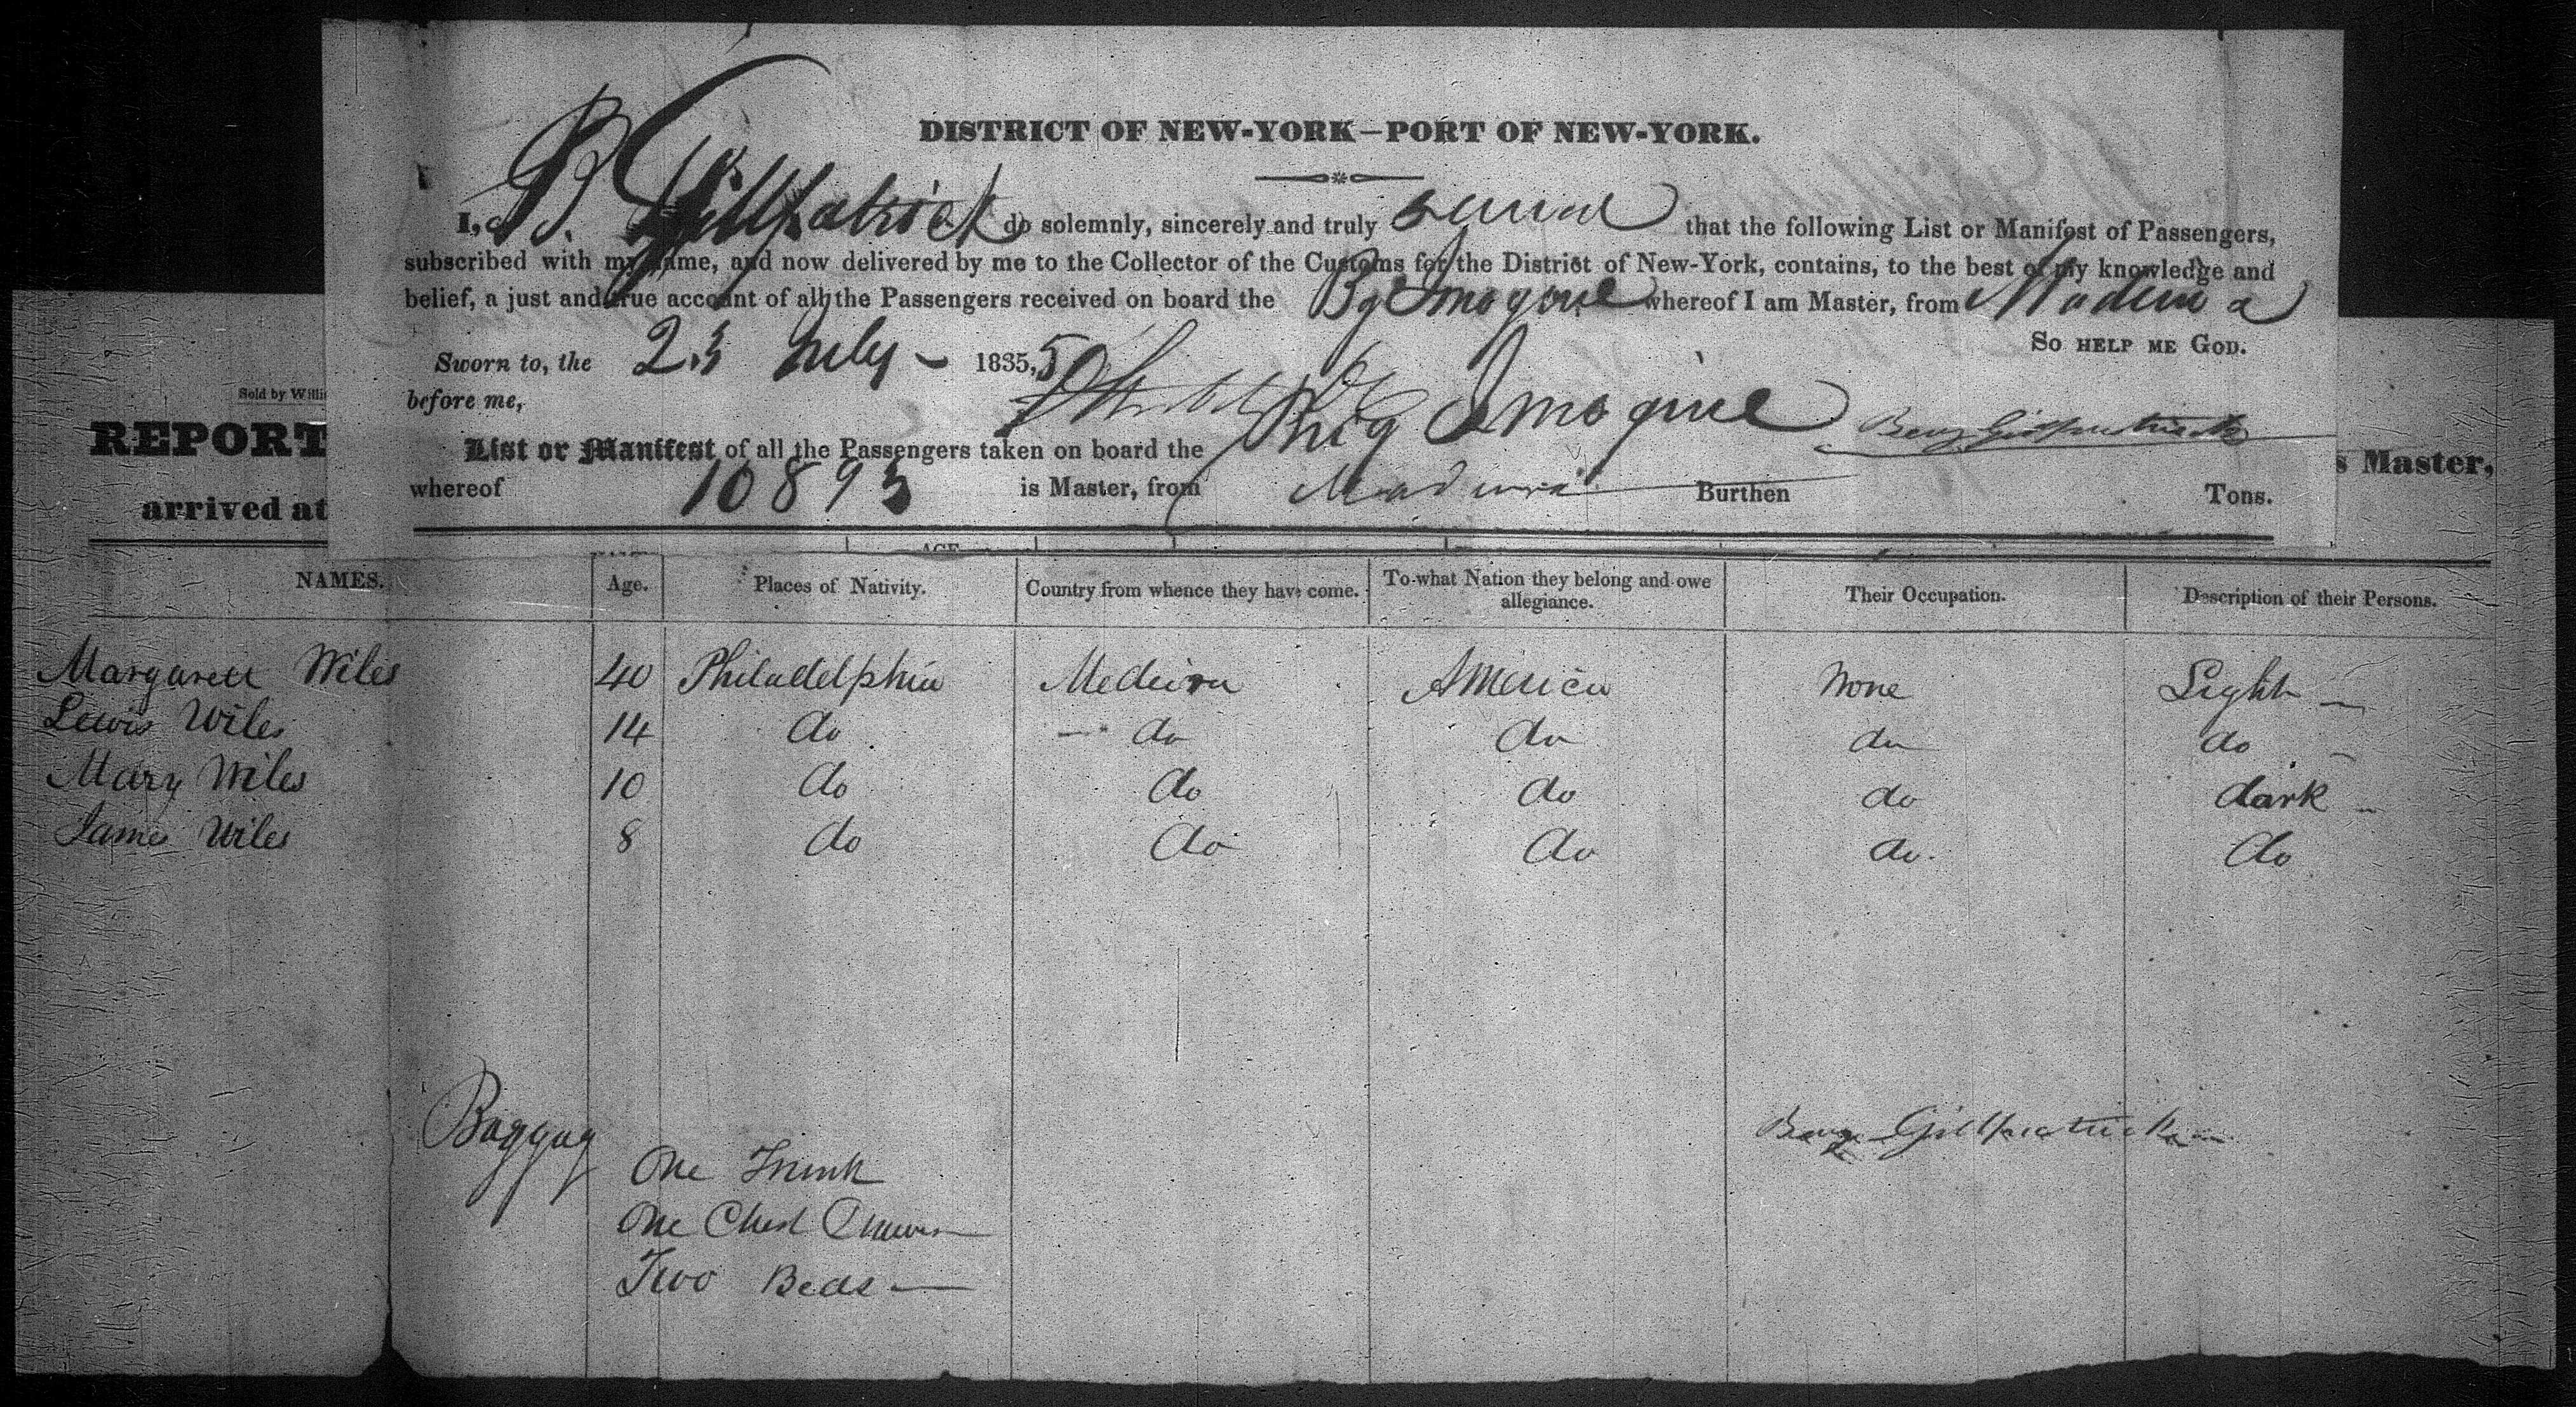 DISTRICT OF NEW-YORK—PORT OF NEW-YORK.
I, B. Gillpatrick do solemnly, sincerely and truly swear that the following List or Manifest of Passengers,
subscribed with my name, and now delivered by me to the Collector of the Customs for the District of New-York, contains, to the best of my knowledge and
belief, a just and true account of all the Passengers received on board the Bg Imogene whereof I am Master, from Madeira
So HELP ME GOD.
Sworn to, the 23 July 1835, 5
before me,
List or Manifest of all the Passengers taken on board the Brig Imogene Benj Gillpatrick
whereof 10893 is Master, from Madeira Burthen Tons.
Sold by Willi
REPORT
s Master,
arrived at
AGE
NAMES. Age. Places of Nativity. Country from whence they have come. To what Nation they belong and owe allegiance. Their Occupation. Description of their Persons.
Margarett Wiles 40 Philadelphia Medeira America None Light
Lewis Wiles 14 do do do do do
Mary Wiles 10 do do do do dark
James Wiles 8 do do do do. do
Baggag
Benj Gillpatrick
One Trunk
One Chest Drawers
Two Beds